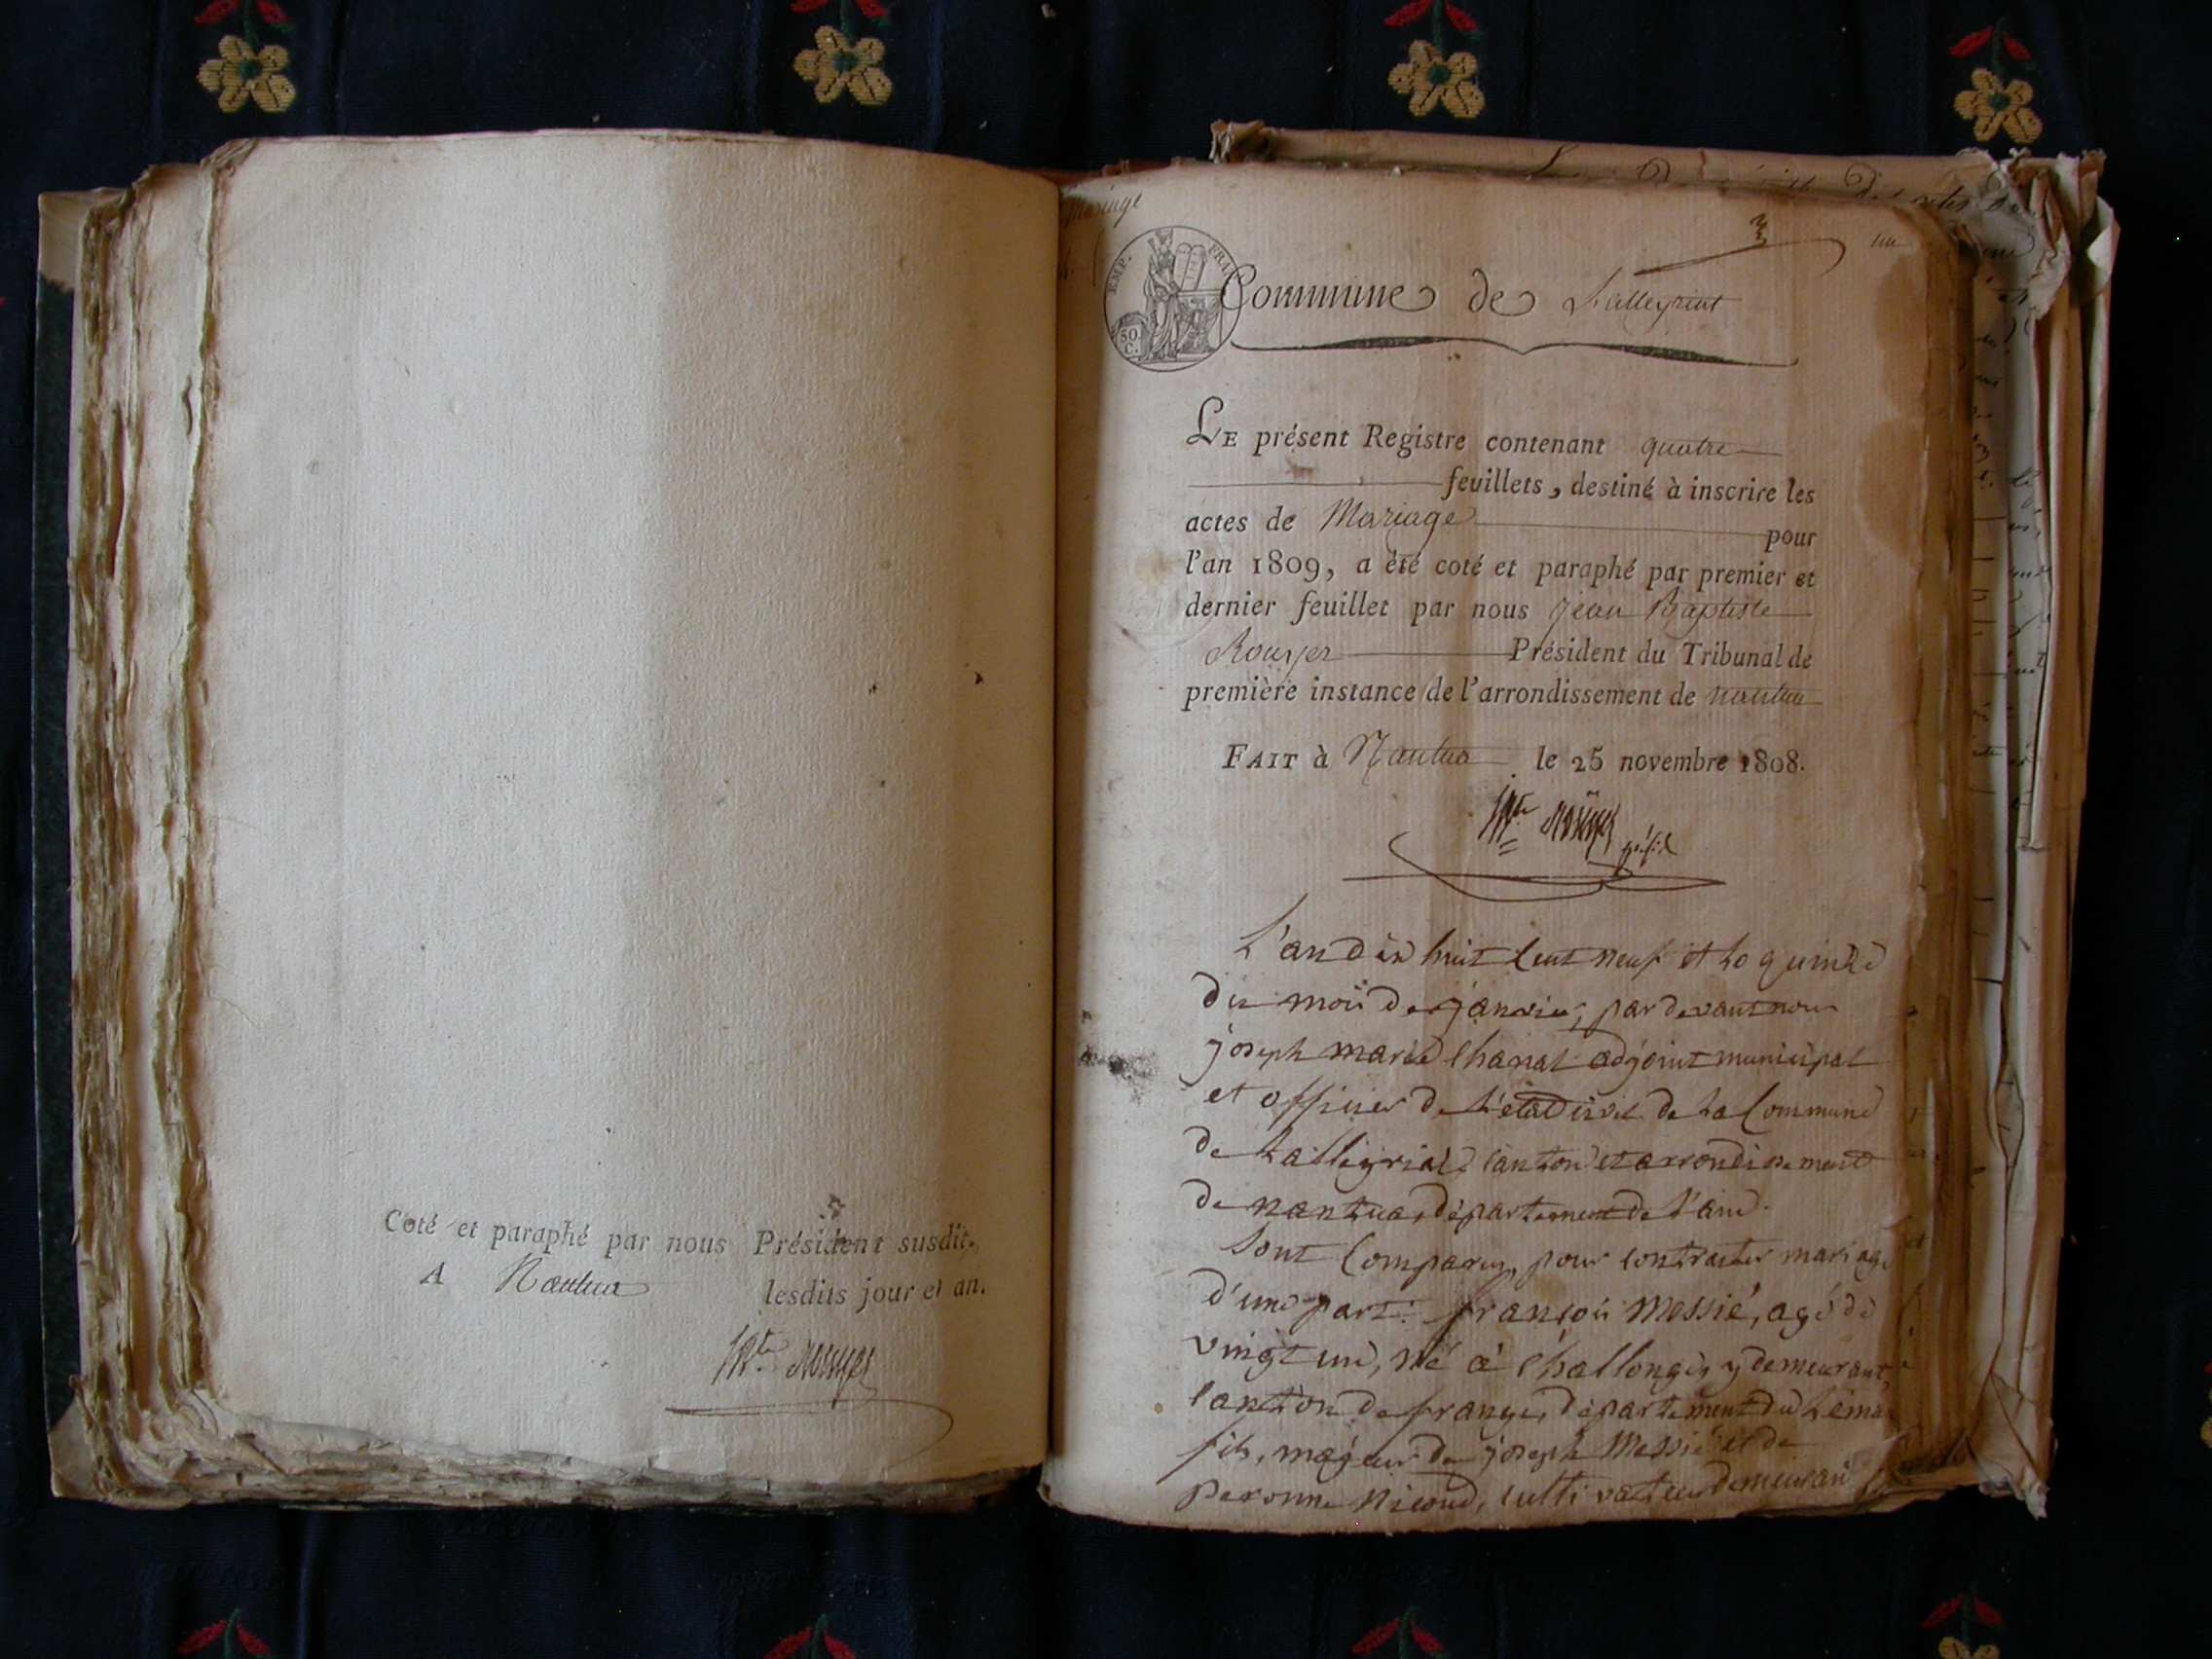 Coté et paraphé par nous Président susdit.
A Nantua lesdits jour et an.
JBte Rouyer
mariage
EMP. FRA.
50
C.
un
Commune de Lalleyriat
LE présent Registre contenant quatre
feuillets, destiné à inscrire les
actes de Mariage pour
l'an 1809, a été coté et paraphé par premier et
dernier feuillet par nous Jean Baptiste
Rouyer Président du Tribunal de
première instance de l'arrondissement de nantua
FAIT à Nantua le 25 novembre 1808.
JBte Rouyer présid
L'an dix huit Cent neuf et le quinze
du mois de janvier, par devant nous
joseph marie Chanal adjoint municipal
et officier de l'état civil de la Commune
de Lalleyriat, canton et arrondissement
de nantua, département de l'ain.
Sont Comparus, pour contracter mariage
d'une part: françois Messié, agé de
vingt un, né à Challonges y demeurant,
canton de frangy, département du Léman
fils, majeur de joseph Messié et de
peronne Nicoud, cultivateur demeurant